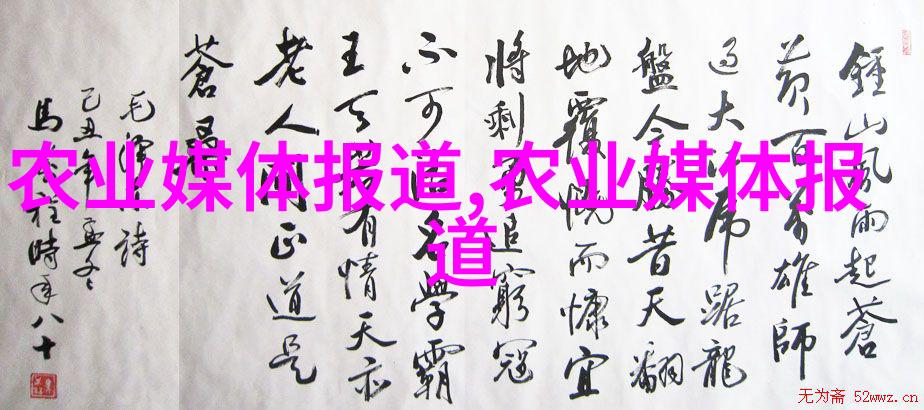 鍾山風雨起蒼
黄百万雄師
過大江虎踞龍
盤今勝昔天翻
地覆慨而慷宜
將剩勇追窮寇
不可沽名學霸
王天若有情天亦
老人间正道是
蒼桑
毛澤东詩
己丑年孟冬
馬柱時年八十
农业媒体报道,农业媒体报
道
无为斋 52wwz.cn